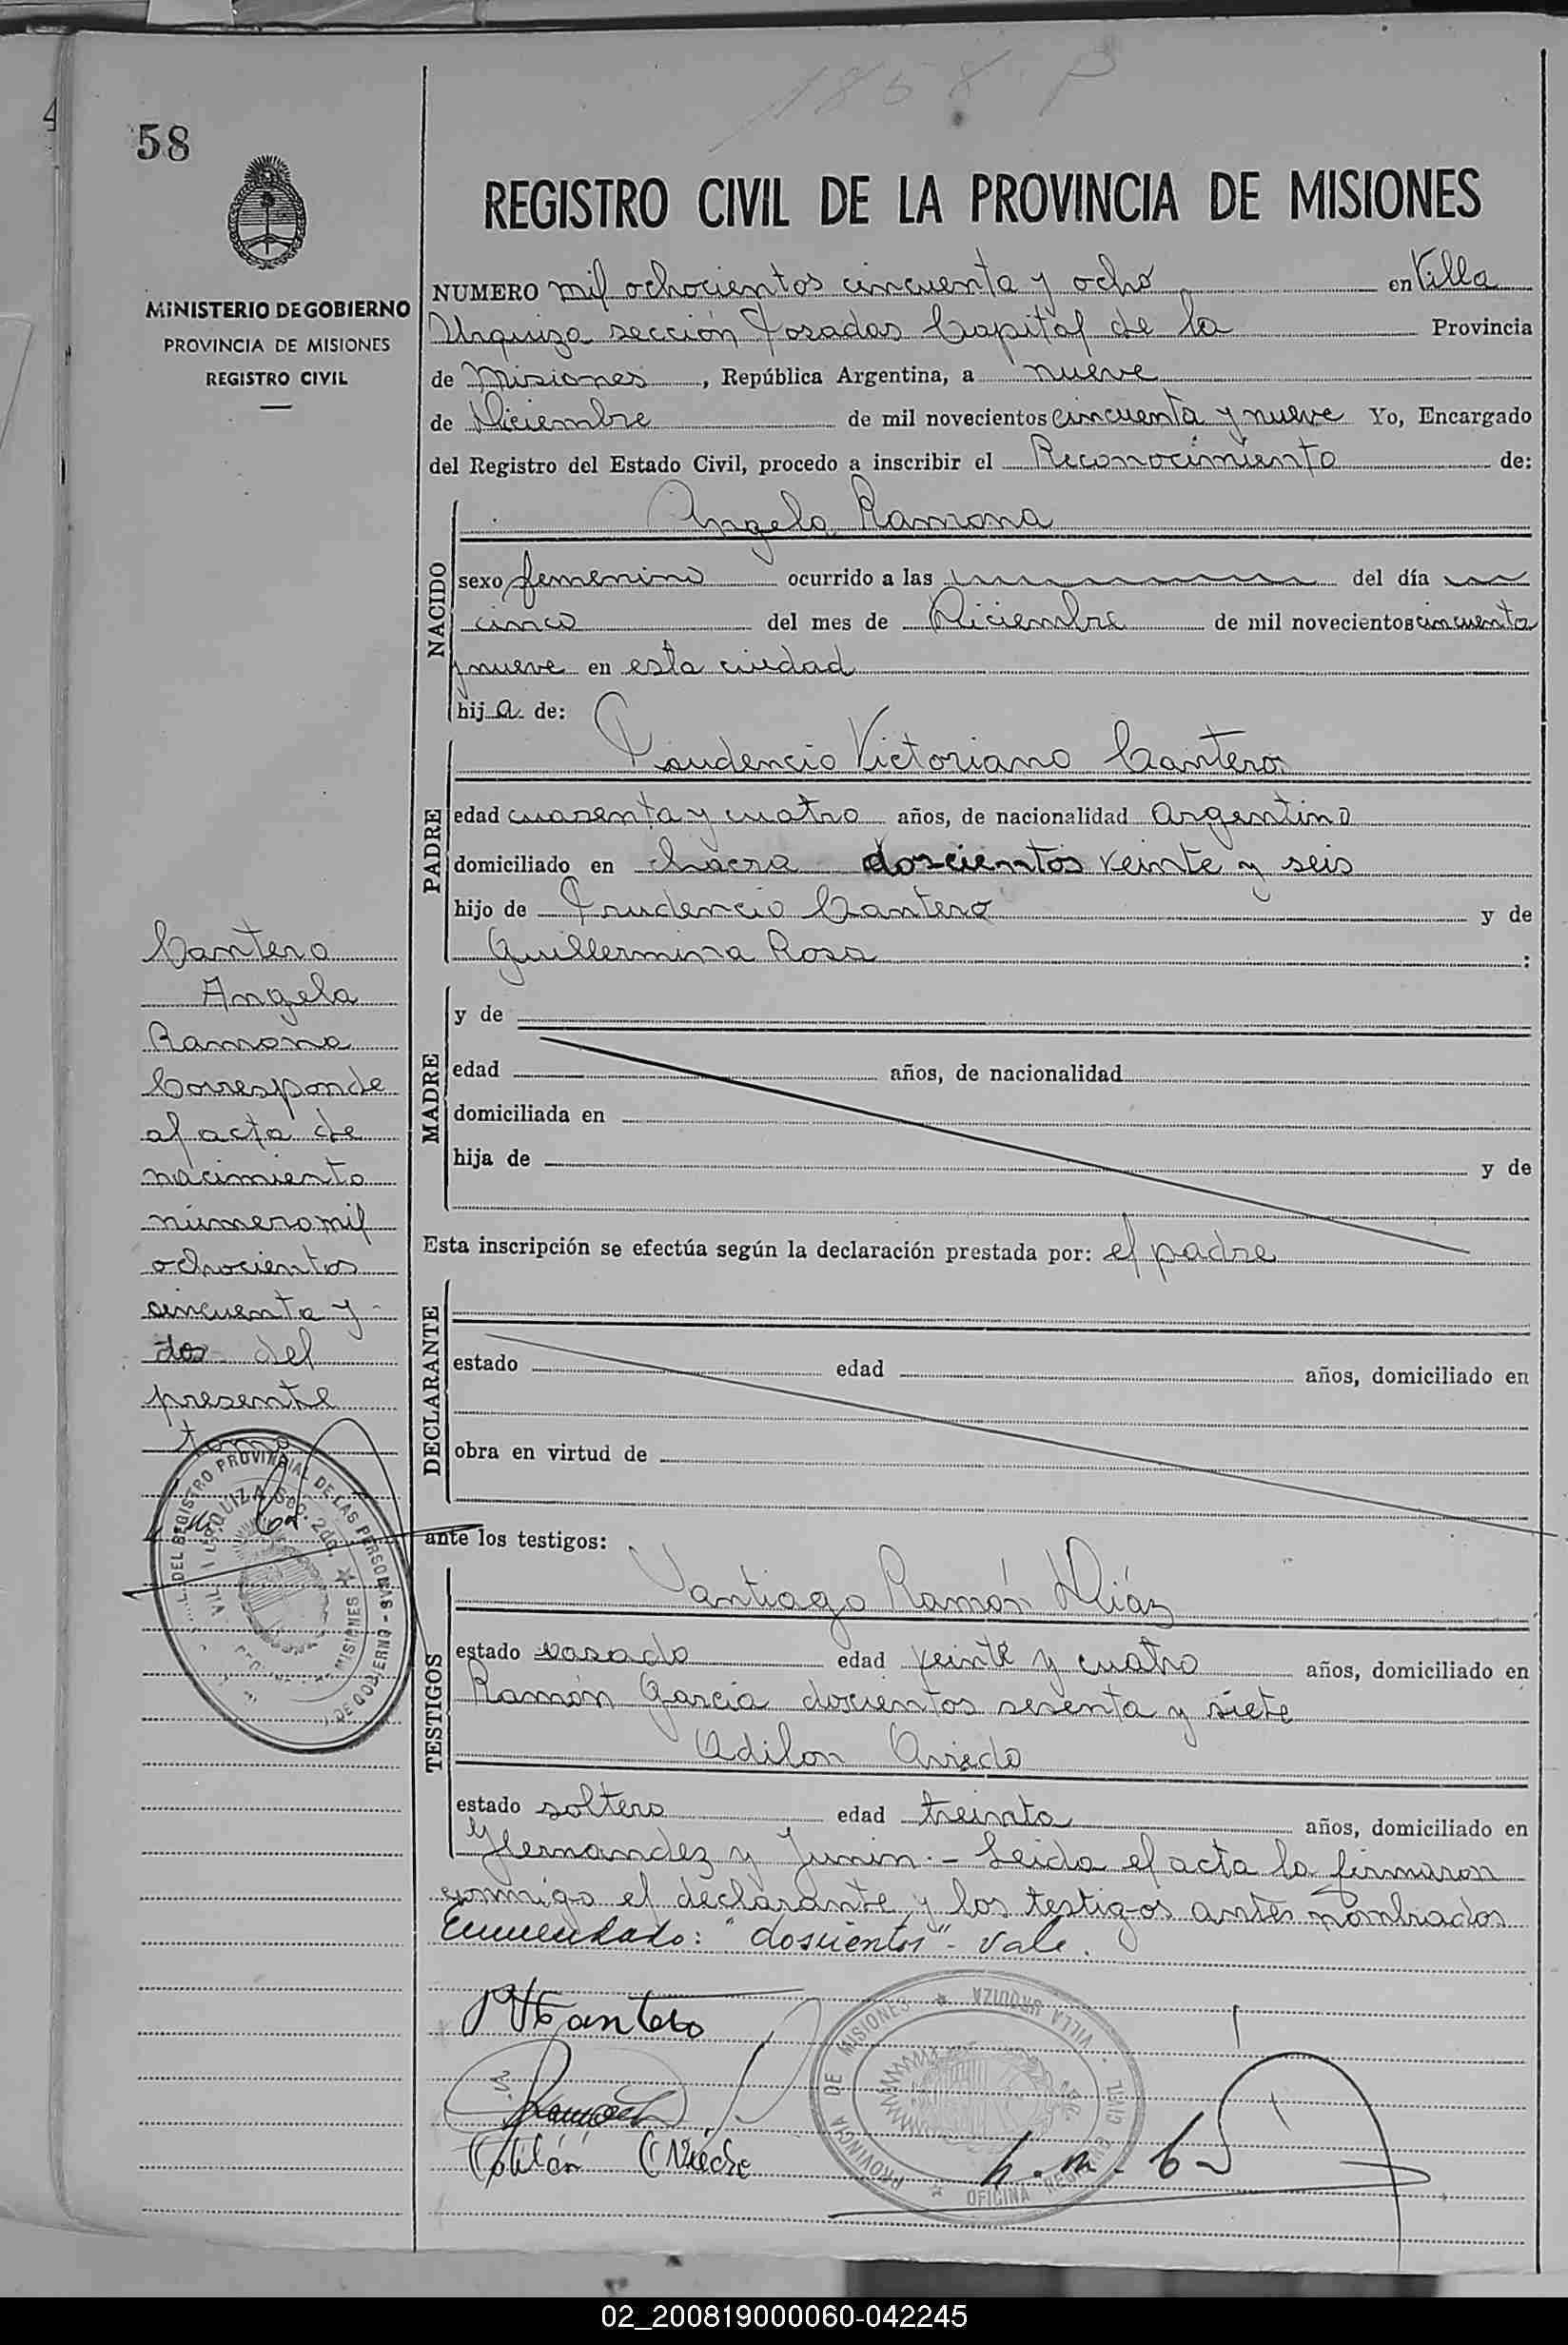 1858 P
58
REGISTRO CIVIL DE LA PROVINCIA DE MISIONES
MINISTERIO DE GOBIERNO
PROVINCIA DE MISIONES
REGISTRO CIVIL
NUMERO mil ochocientos cincuenta y ocho en Villa
Urquiza sección Posadas Capital de la Provincia
de Misiones, República Argentina, a nueve
de Diciembre de mil novecientos cincuenta y nueve Yo, Encargado
del Registro del Estado Civil, procedo a inscribir el Reconocimiento de:
NACIDO
Angela Ramona
sexo femenino ocurrido a las del día
cinco del mes de Diciembre de mil novecientos cincuenta
y nueve en esta ciudad
hija de:
PADRE
Prudencio Victoriano Cantero
edad cuarenta y cuatro años, de nacionalidad Argentino
domiciliado en chacra doscientos veinte y seis
hijo de Prudencio Cantero y de
Guillermina Rosa :
MADRE
y de
edad años, de nacionalidad
domiciliada en
hija de y de
Esta inscripción se efectúa según la declaración prestada por: el padre
DECLARANTE
estado edad años, domiciliado en
obra en virtud de
ante los testigos:
TESTIGOS
Santiago Ramón Diáz
estado casado edad veinte y cuatro años, domiciliado en
Ramón Garcia doscientos sesenta y siete
Odilon Oviedo
estado soltero edad treinta años, domiciliado en
Hernandez y Junin.- Leida el acta la firmaron
conmigo el declarante y los testigos antes nombrados
Enmendado: "doscientos"- Vale.
Cantero
Angela
Ramona
Corresponde
al acta de
nacimiento
número mil
ochocientos
cincuenta y
dos del
presente
tomo
DEL REGISTRO PROVINCIAL DE LAS PERSONAS - GOBIERNO
VILLA URQUIZA Sec. 2da.
MISIONES
PVCantero
PROVINCIA DE MISIONES ★ VILLA URQUIZA
OFICINA REGISTRO CIVIL
02_200819000060-042245